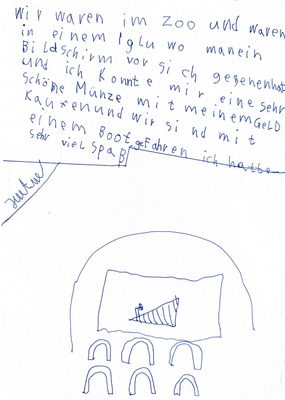 wir waren im Zoo und waren
in einem Iglu wo manein
Bildschirm vor sich gegenenhat
und ich konnte mir eine sehr
schöne Münze mit meinem GelD
kaufenund wir sind mit
einem Boot gefahren ich hatte
sehr viel spaß